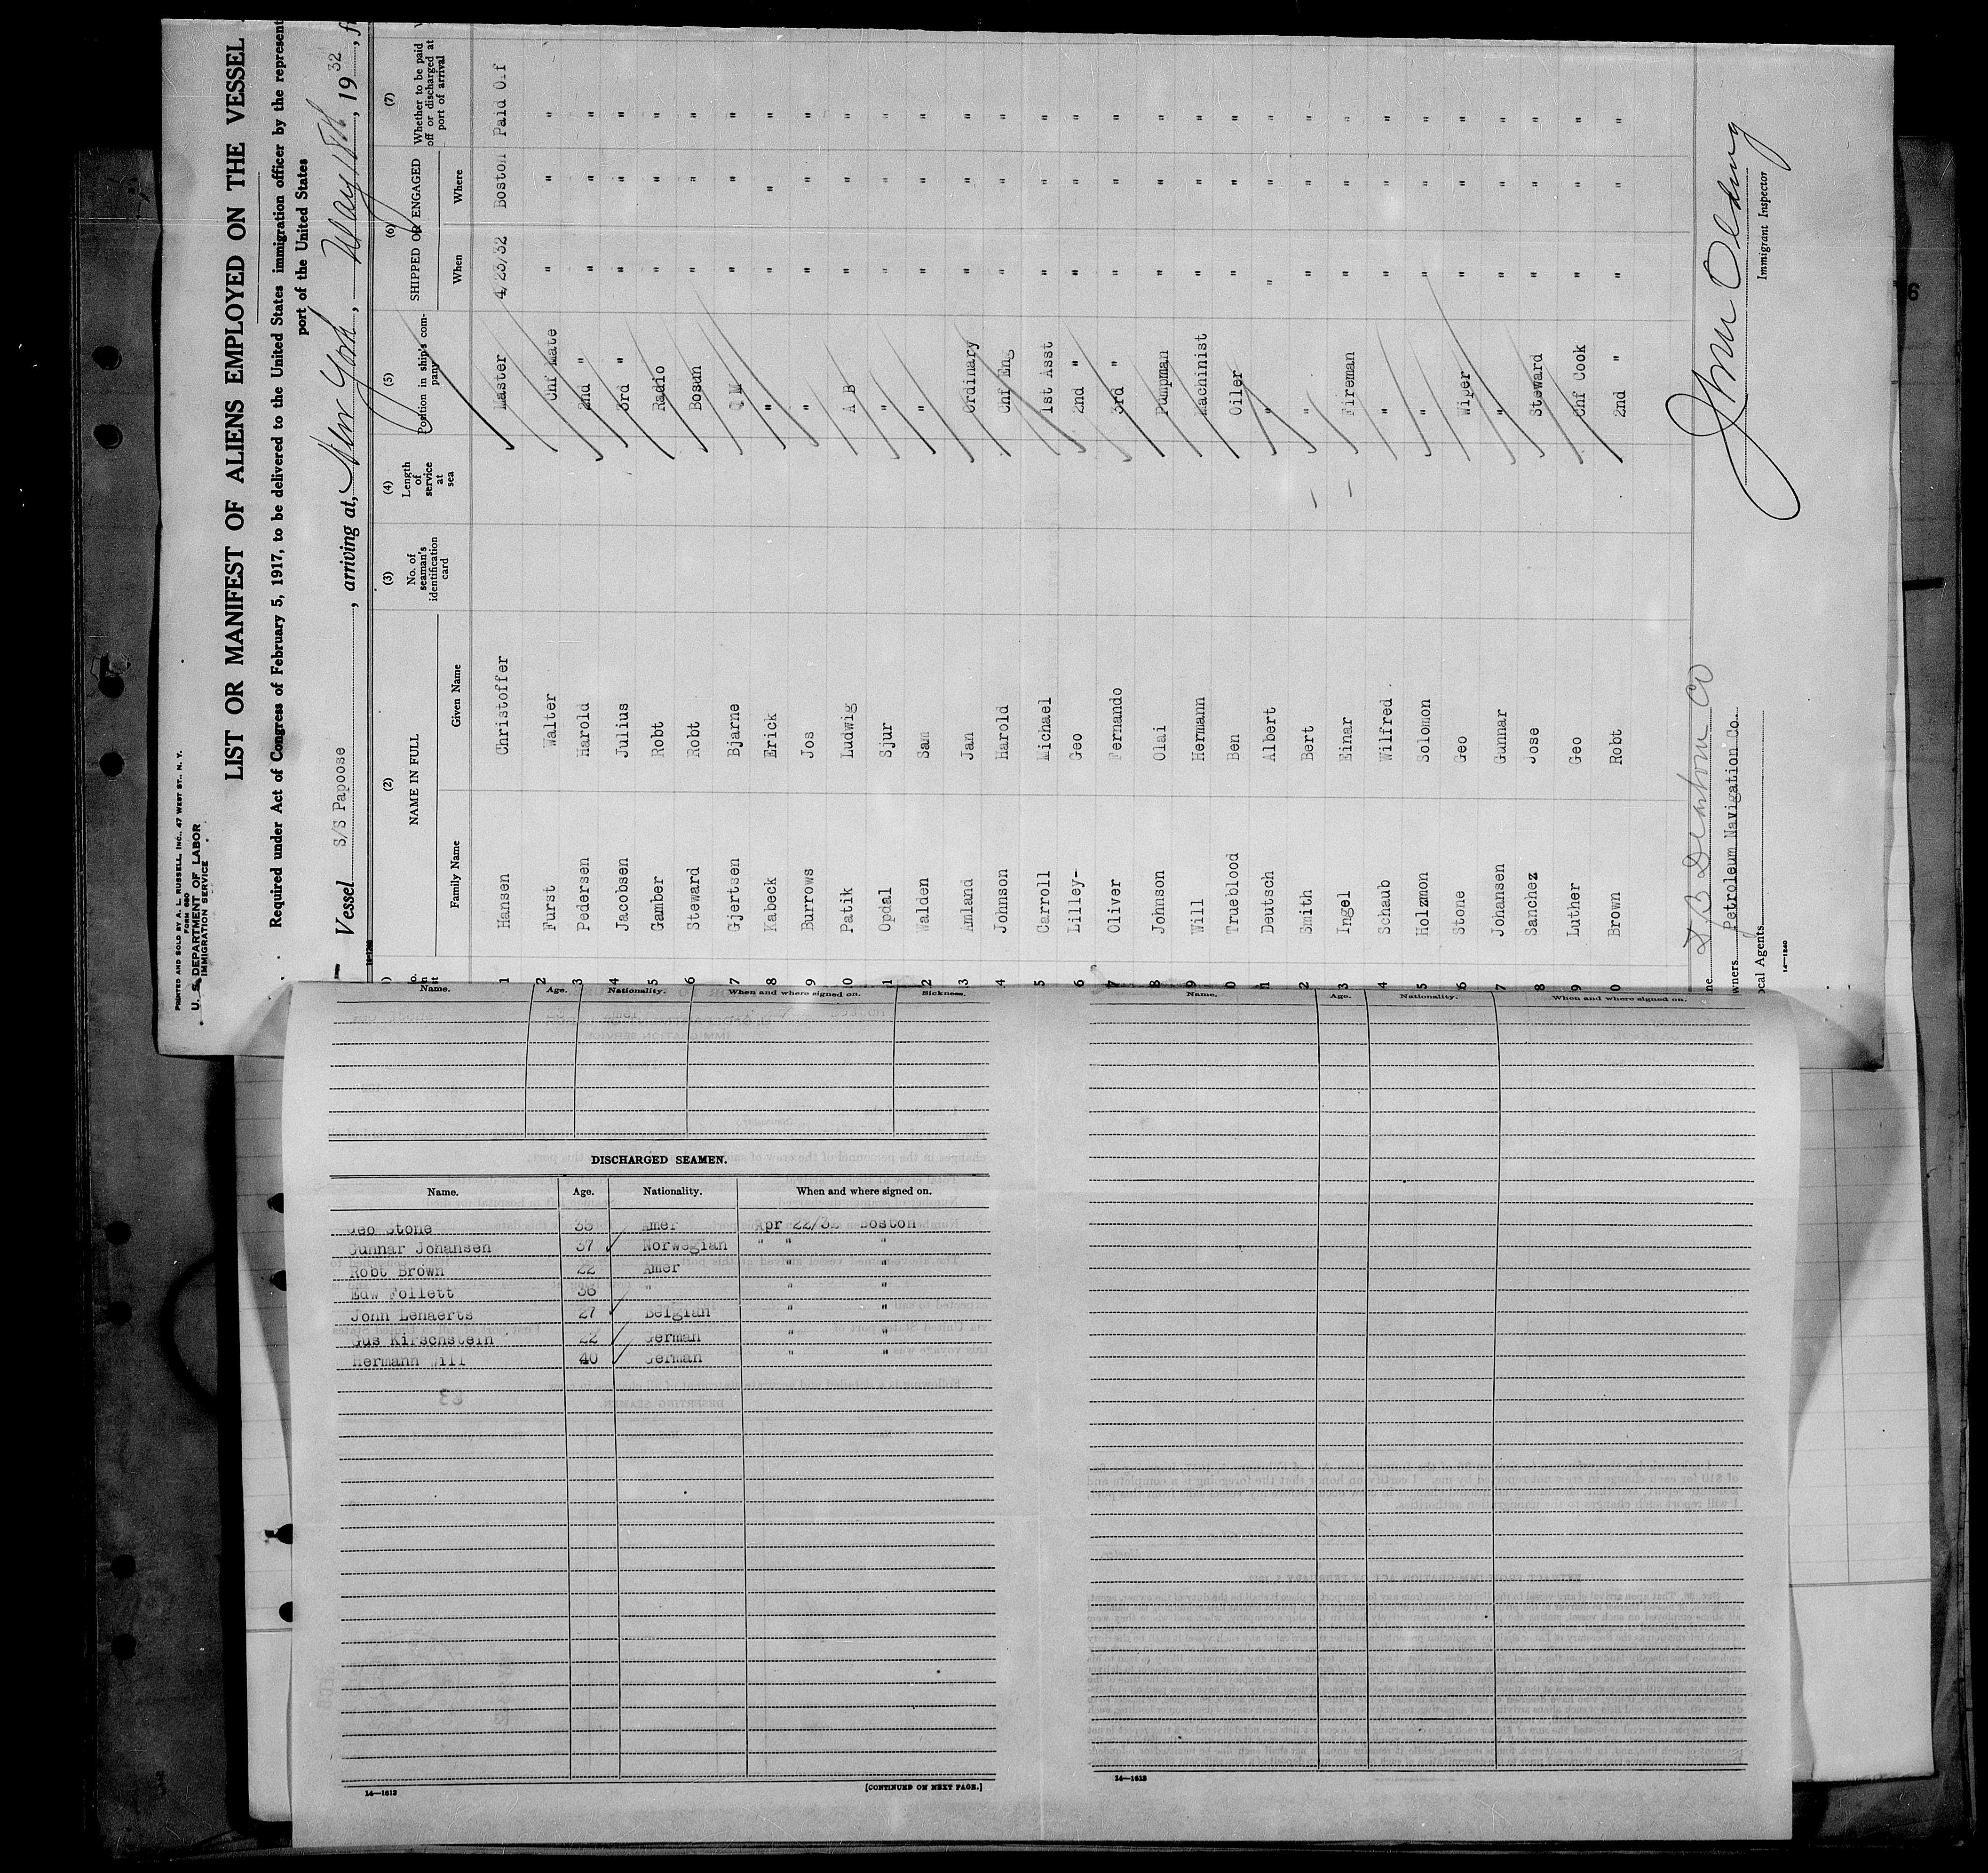 PRINTED AND SOLD BY A. L. RUSSELL, INC., 47 WEST ST., N. Y.
FORM 680
U. S. DEPARTMENT OF LABOR
IMMIGRATION SERVICE
LIST OR MANIFEST OF ALIENS EMPLOYED ON THE VESSEL
Required under Act of Congress of February 5, 1917, to be delivered to the United States immigration officer by the represent
port of the United States
Vessel S/S Papoose, arriving at, New York, May 18th, 1932, f
(2) (3) (4) (5) (6) (7)
NAME IN FULL No. of seaman's identification card Length of service at sea Position in ship's company SHIPPED OR ENGAGED Whether to be paid off or discharged at port of arrival
Family Name Given Name When Where
1 Hansen Christoffer Master 4/23/32 Boston Paid Off
2 Furst Walter Chf Mate " " "
3 Pedersen Harold 2nd " " " "
4 Jacobsen Julius 3rd " " " "
5 Gamber Robt Radio " " "
6 Steward Robt Bosun " " "
7 Gjertsen Bjarne Q M " " "
8 Kabeck Erick " " " "
9 Burrows Jos " " " "
0 Patik Ludwig A B " " "
1 Opdal Sjur " " " "
2 Walden Sam " " " "
3 Amland Jan Ordinary " " "
4 Johnson Harold Chf Eng " " "
5 Carroll Michael 1st Asst " " "
6 Lilley- Geo 2nd " " " "
7 Oliver Fernando 3rd " " " "
8 Johnson Olai Pumpman " " "
9 Will Hermann Machinist " " "
0 Trueblood Ben Oiler " " "
1 Deutsch Albert " " " "
2 Smith Bert " " " "
3 Ingel Einar Fireman " " "
4 Schaub Wilfred " " " "
5 Holzmon Solomon " " " "
6 Stone Geo Wiper " " "
7 Johansen Gunnar " " " "
8 Sanchez Jose Steward " " "
9 Luther Geo Chf Cook " " "
0 Brown Robt 2nd " " " "
ne
wners Petroleum Navigation Co.
ocal Agents
14—1240
Immigrant Inspector
Name. Age. Nationality. When and where signed on. Sickness.
DISCHARGED SEAMEN.
Name. Age. Nationality. When and where signed on.
Geo Stone 35 Amer Apr 22/32 Boston
Gunnar Johansen 37 Norwegian " " "
Robt Brown 22 Amer " "
Edw Follett 36 " " "
John Lenaerts 27 Belgian " "
Gus Kirschstein 22 German " "
Hermann Will 40 German " "
14—1613
[CONTINUED ON NEXT PAGE.]
Name. Age. Nationality. When and where signed on.
14—1613
6